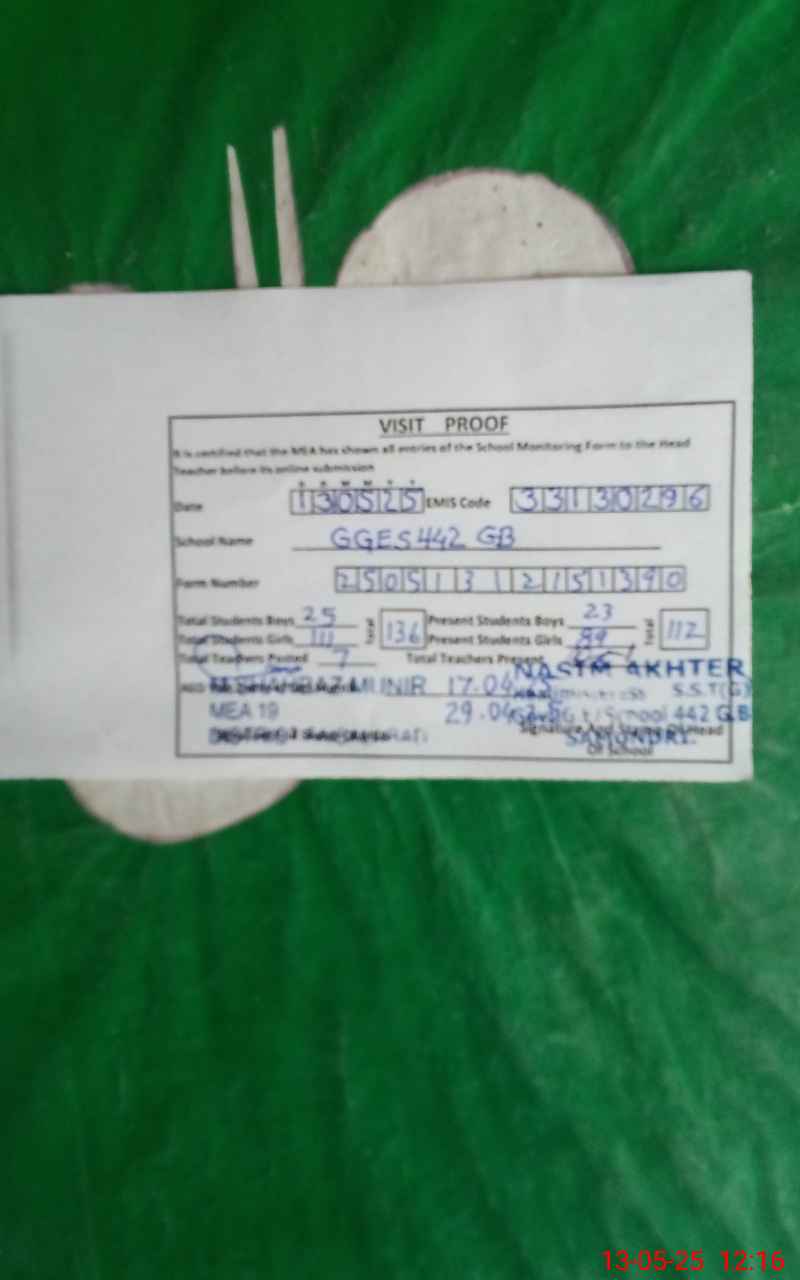 VISIT PROOF
It is certified that the MEA has shown all entries of the School Monitoring Form to the Head
Teacher before its online submission
D D M M Y Y
Date 130525 EMIS Code 33130296
School Name GGES 442 GB
Form Number 25051312151390
Total Students Boys 25 Total 136 Present Students Boys 23 Total 112
Total Students Girls 111 Present Students Girls 89
Total Teachers Posted 7 Total Teachers Present
NASIM AKHTER
MUNIR 17.04.25 S.S.T(G)
MEA 19 29.04.25 School 442 G.B
Signature And Stamp Of Head
SAMUNDRI.
Of School
13-05-25 12:16